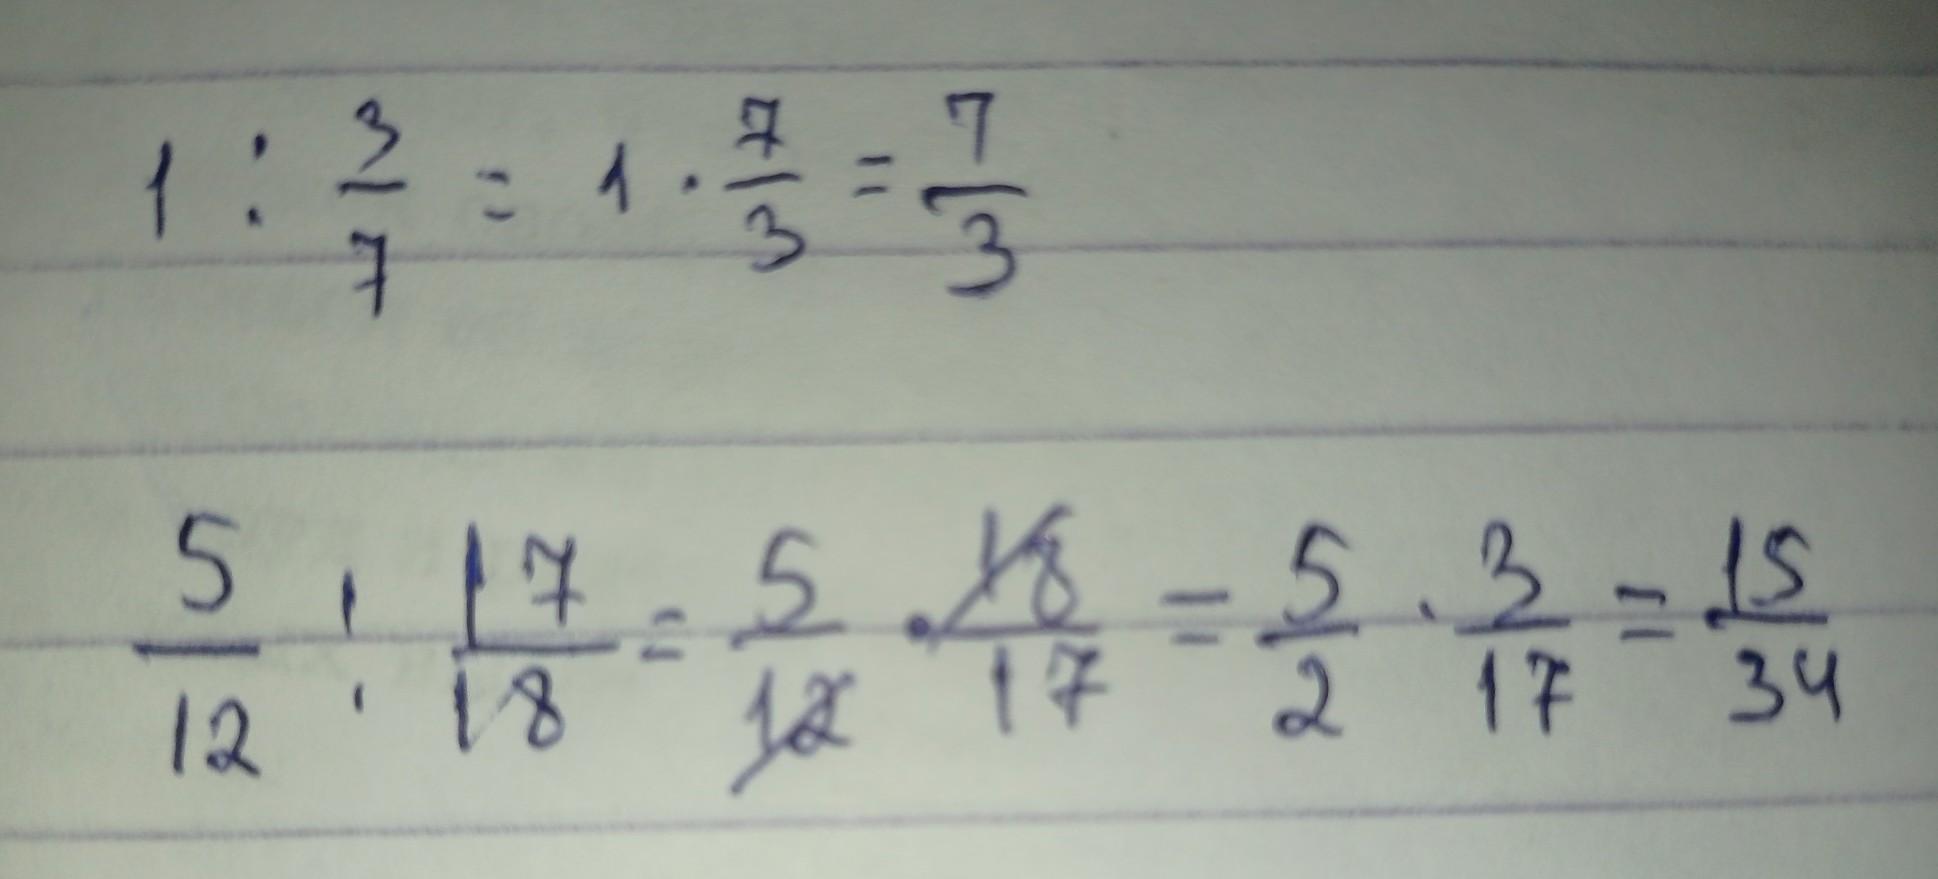 1 : 3/7 = 1 · 7/3 = 7/3
5/12 : 17/18 = 5/12 · 18/17 = 5/2 · 3/17 = 15/34